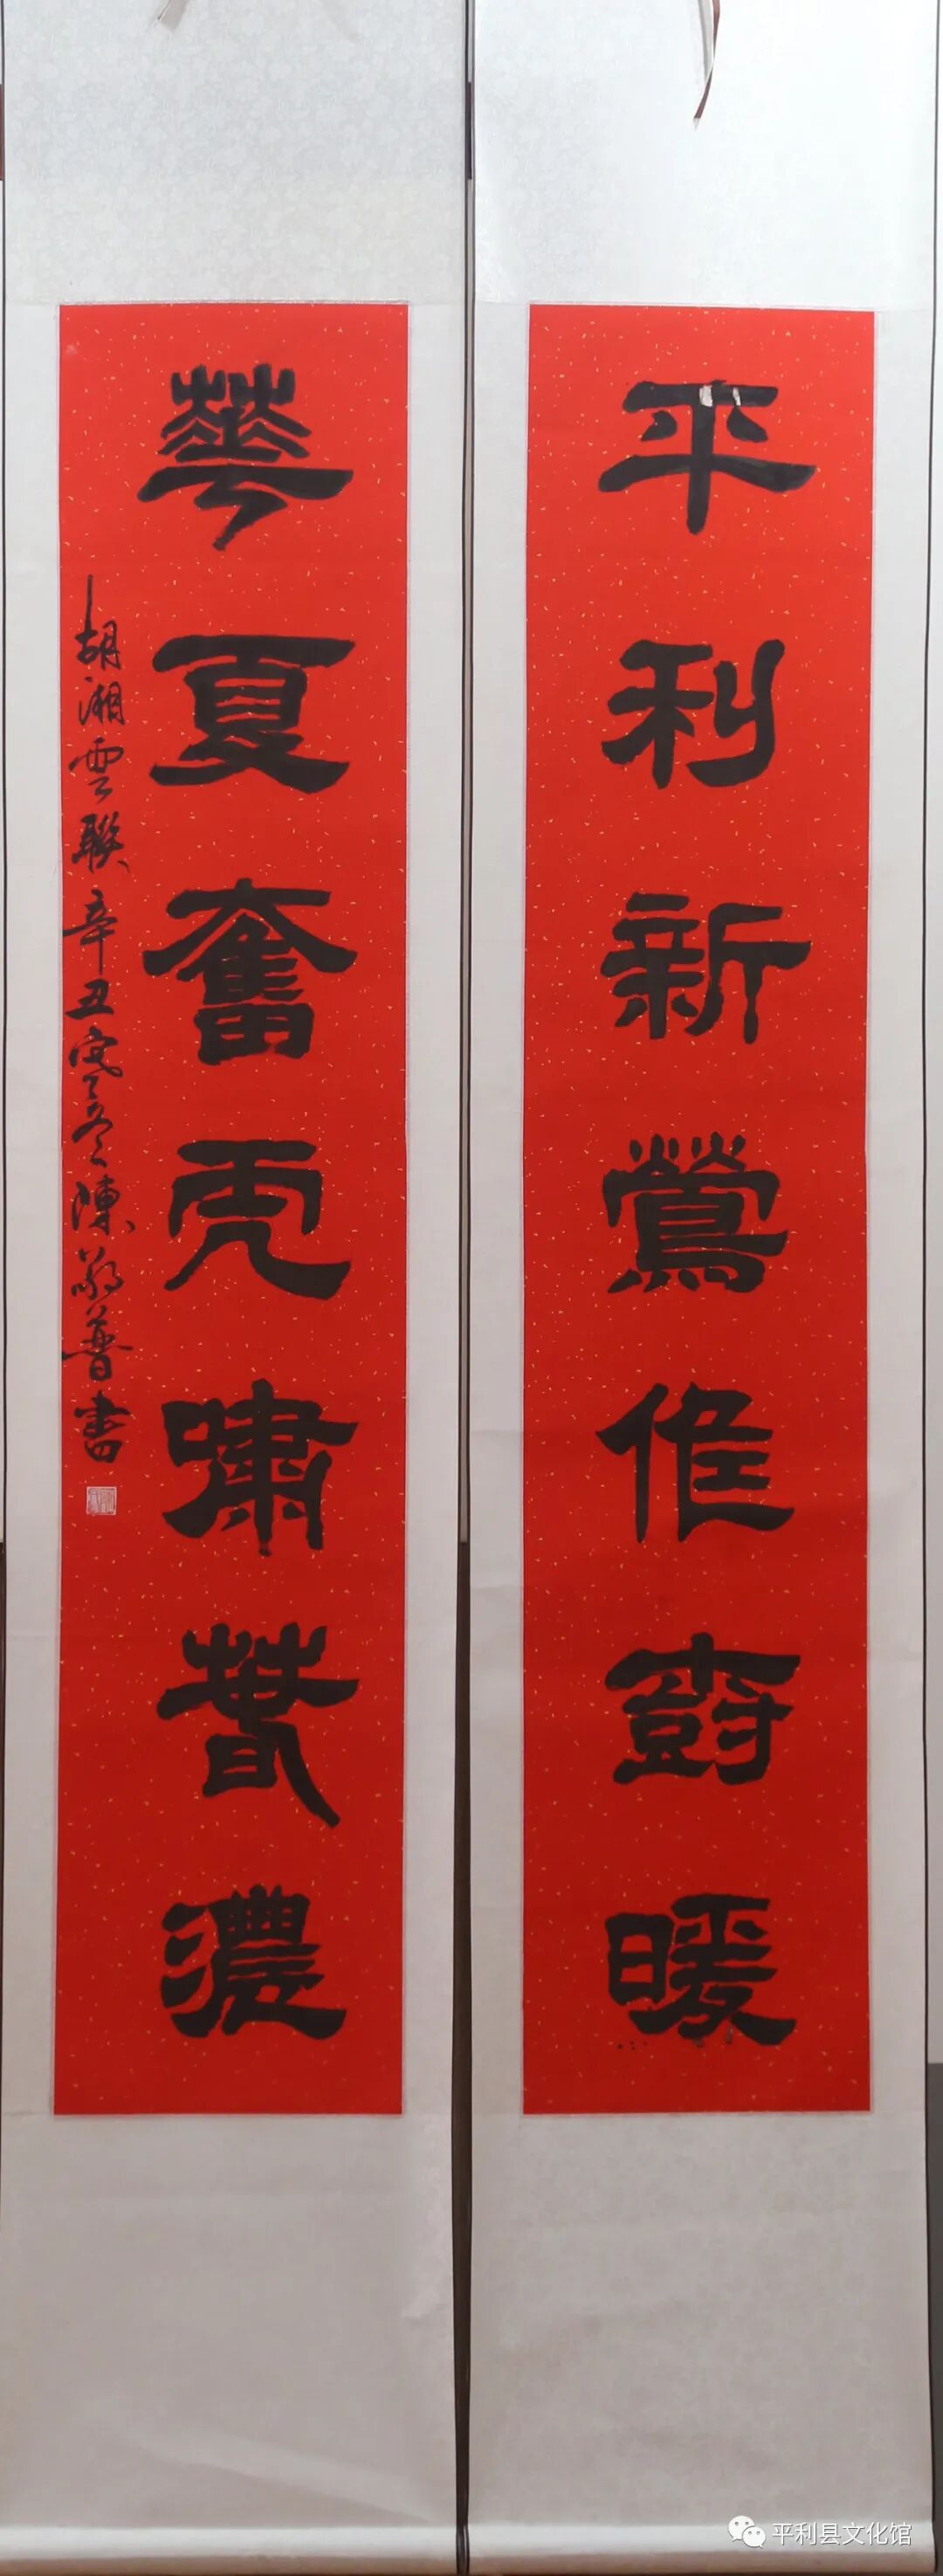 平利新鶯樹暖
華夏奮虎嘯春濃
胡湘雲聯辛丑寒冬陳敬普書
平利县文化馆